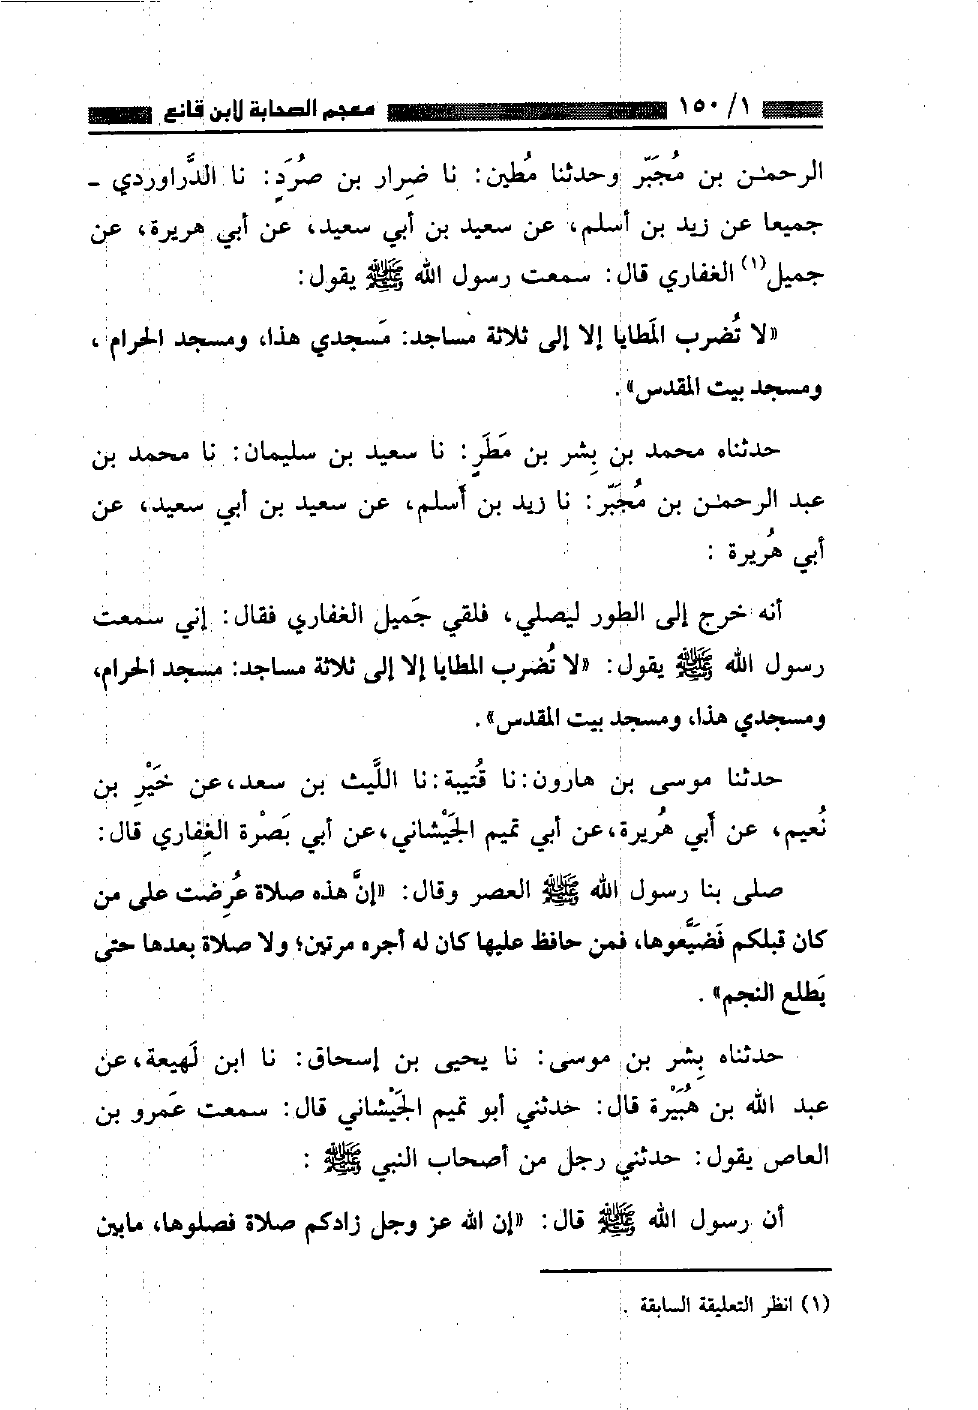 ١/١٥٠ معجم الصحابة لابن قانع
الرحمٰن بن مُجَبَّر وحدثنا مُطين: نا ضِرار بن صُرَدٍ: نا الدَّراوردي -
جميعا عن زيد بن أسلم، عن سعيد بن أبي سعيد، عن أبي هريرة، عن
جميل(١) الغفاري قال: سمعت رسول الله ﷺ يقول:
«لا تُضرب المَطايا إلا إلى ثلاثة مساجد: مَسجدي هذا، ومسجد الحرام ،
ومسجد بيت المقدس».
حدثناه محمد بن بِشر بن مَطَرٍ: نا سعيد بن سليمان: نا محمد بن
عبد الرحمٰن بن مُجَبَّر: نا زيد بن أَسلم، عن سعيد بن أبي سعيد، عن
أبي هُريرة :
أنه خرج إلى الطور ليصلي، فلقي جَميل الغفاري فقال: إني سمعت
رسول الله ﷺ يقول: «لا تُضرب المطايا إلا إلى ثلاثة مساجد: مسجد الحرام،
ومسجدي هذا، ومسجد بيت المقدس».
حدثنا موسى بن هارون:نا قُتيبة:نا اللَّيث بن سعد،عن خَيْرِ بن
نُعيم، عن أَبي هُريرة،عن أبي تميم الجَيْشاني،عن أبي بَصْرة الغِفاري قال:
صلى بنا رسول الله ﷺ العصر وقال: «إنَّ هذه صلاة عُرِضت على من
كان قبلكم فَضَيَّعوها، فمن حافظ عليها كان له أجره مرتين؛ ولا صلاة بعدها حتى
يَطلع النجم» .
حدثناه بِشر بن موسى: نا يحيى بن إسحاق: نا ابن لَهيعة،عن
عبد الله بن هُبَيْرة قال: حدثني أبو تميم الجَيْشاني قال: سمعت عَمرو بن
العاص يقول: حدثني رجل من أصحاب النبي ﷺ :
أن رسول الله ﷺ قال: «إن الله عز وجل زادكم صلاة فصلوها، مابين
(١) انظر التعليقة السابقة .